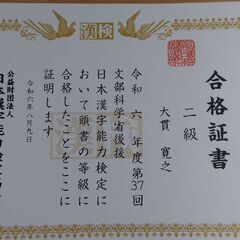 漢検
合格証書
二級
大貫 寛之
令和 六 年度第37回
文部科学省後援
日本漢字能力検定に
おいて頭書の等級に
合格したことをここに
証明します
令和六年八月九日
公益財団法人
日本漢字能力検定